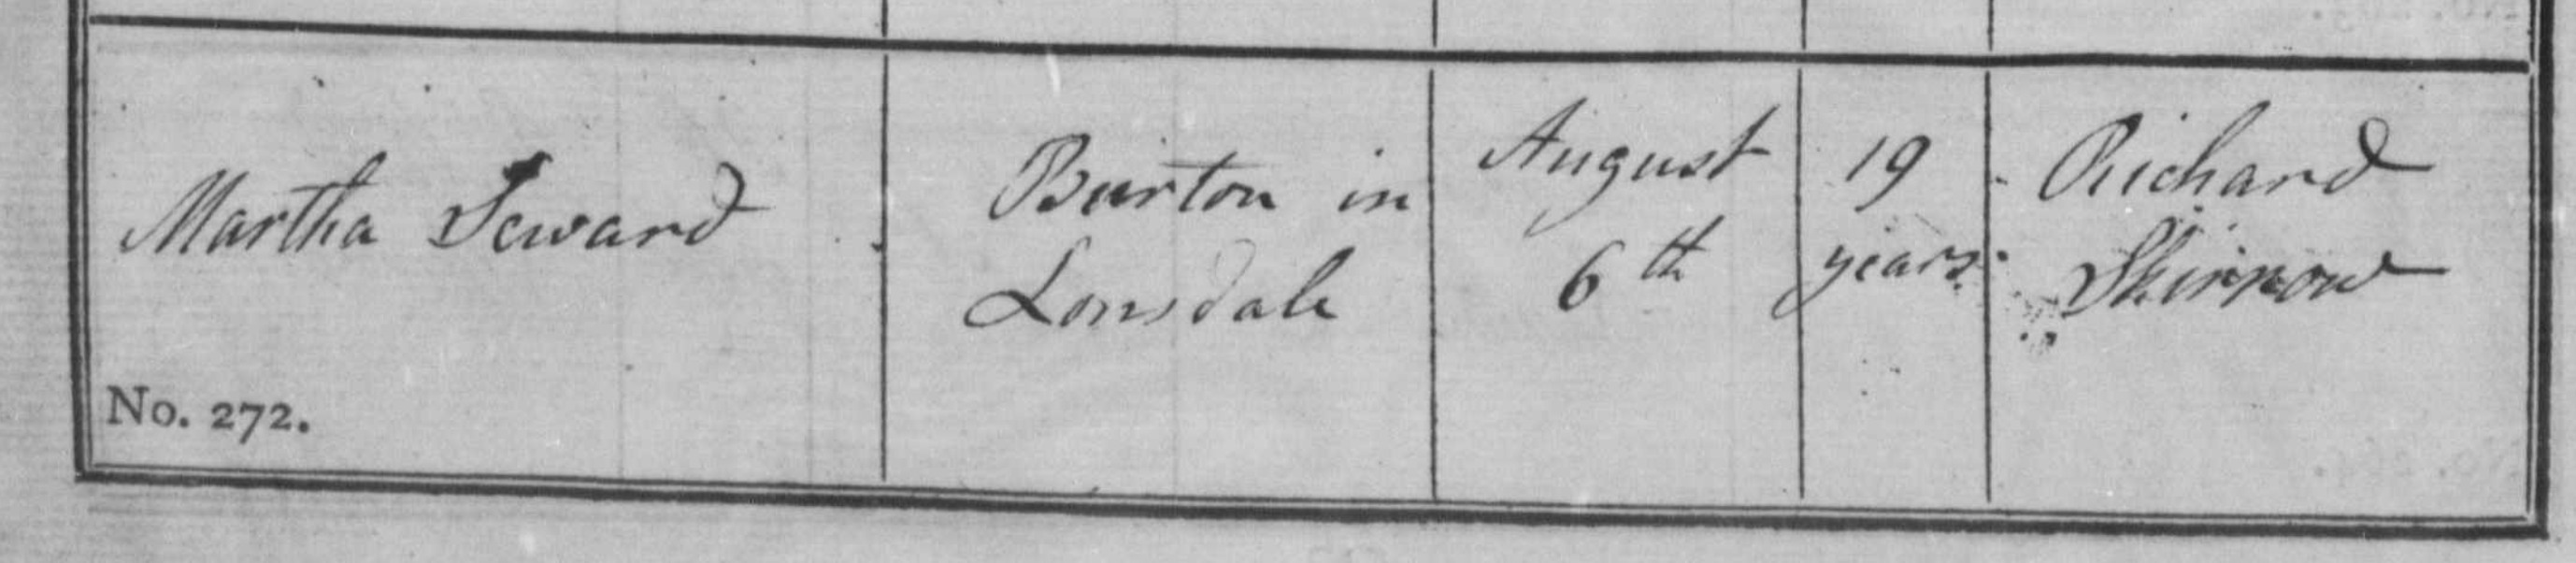 Martha Seward
Burton in
Lonsdale
August
6th
19
years
Richard
Skirrow
No. 272.